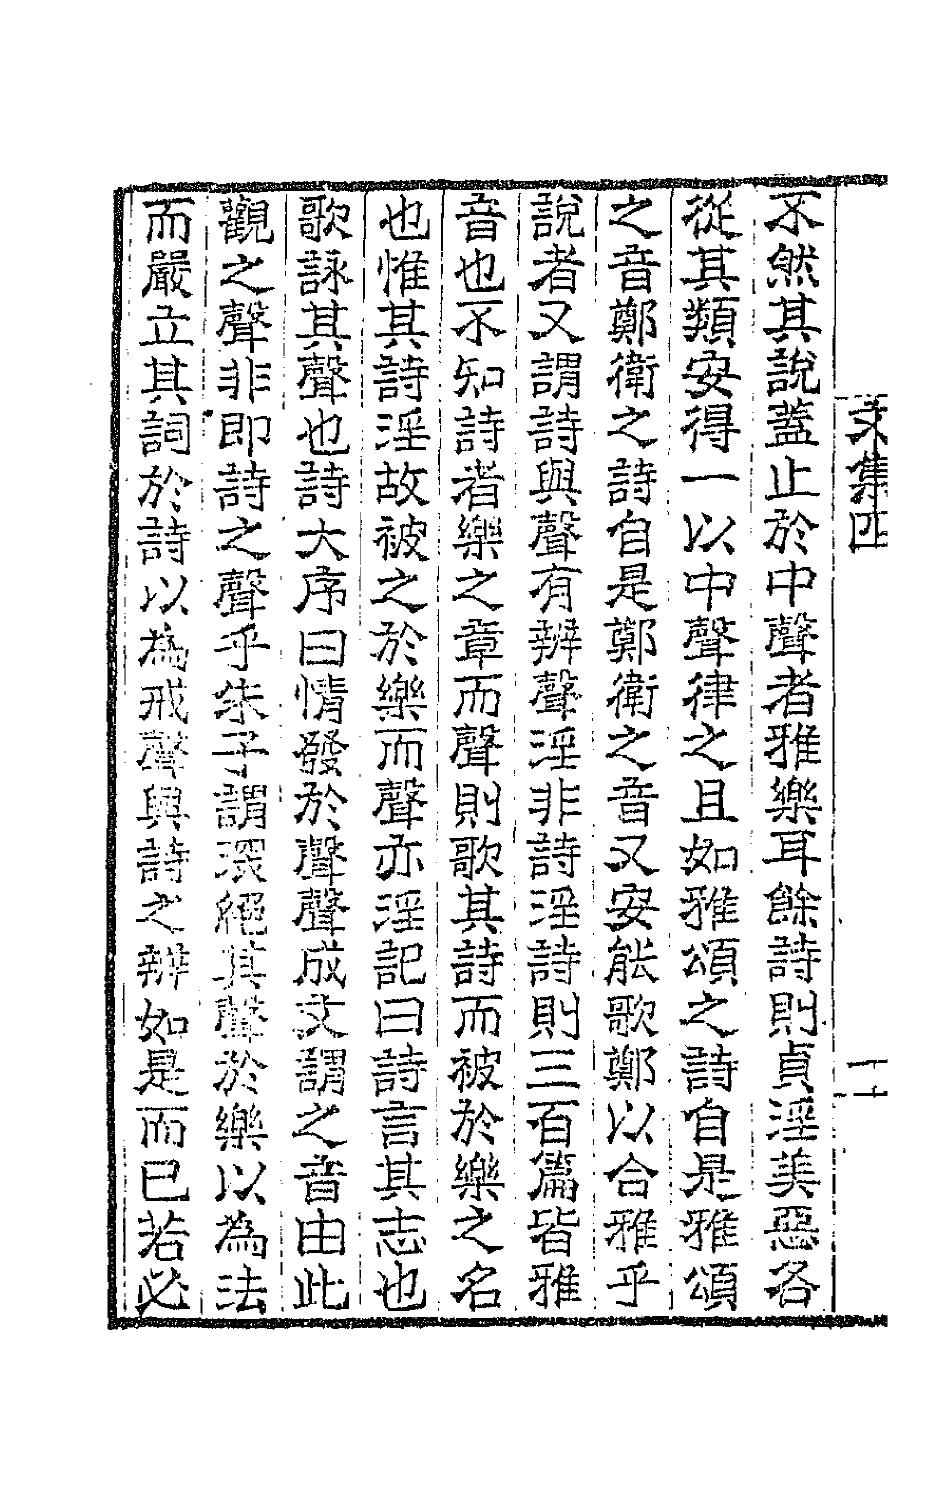 文集四
十
不然其說蓋止於中聲者雅樂耳餘詩則貞淫美惡各
從其類安得一以中聲律之且如雅頌之詩自是雅頌
之音鄭衛之詩自是鄭衛之音又安能歌鄭以合雅乎
說者又謂詩與聲有辨聲淫非詩淫詩則三百篇皆雅
音也不知詩者樂之章而聲則歌其詩而被於樂之名
也惟其詩淫故被之於樂而聲亦淫記曰詩言其志也
歌詠其聲也詩大序曰情發於聲聲成文謂之音由此
觀之聲非即詩之聲乎朱子謂深絕其聲於樂以為法
而嚴立其詞於詩以為戒聲與詩之辨如是而已若必